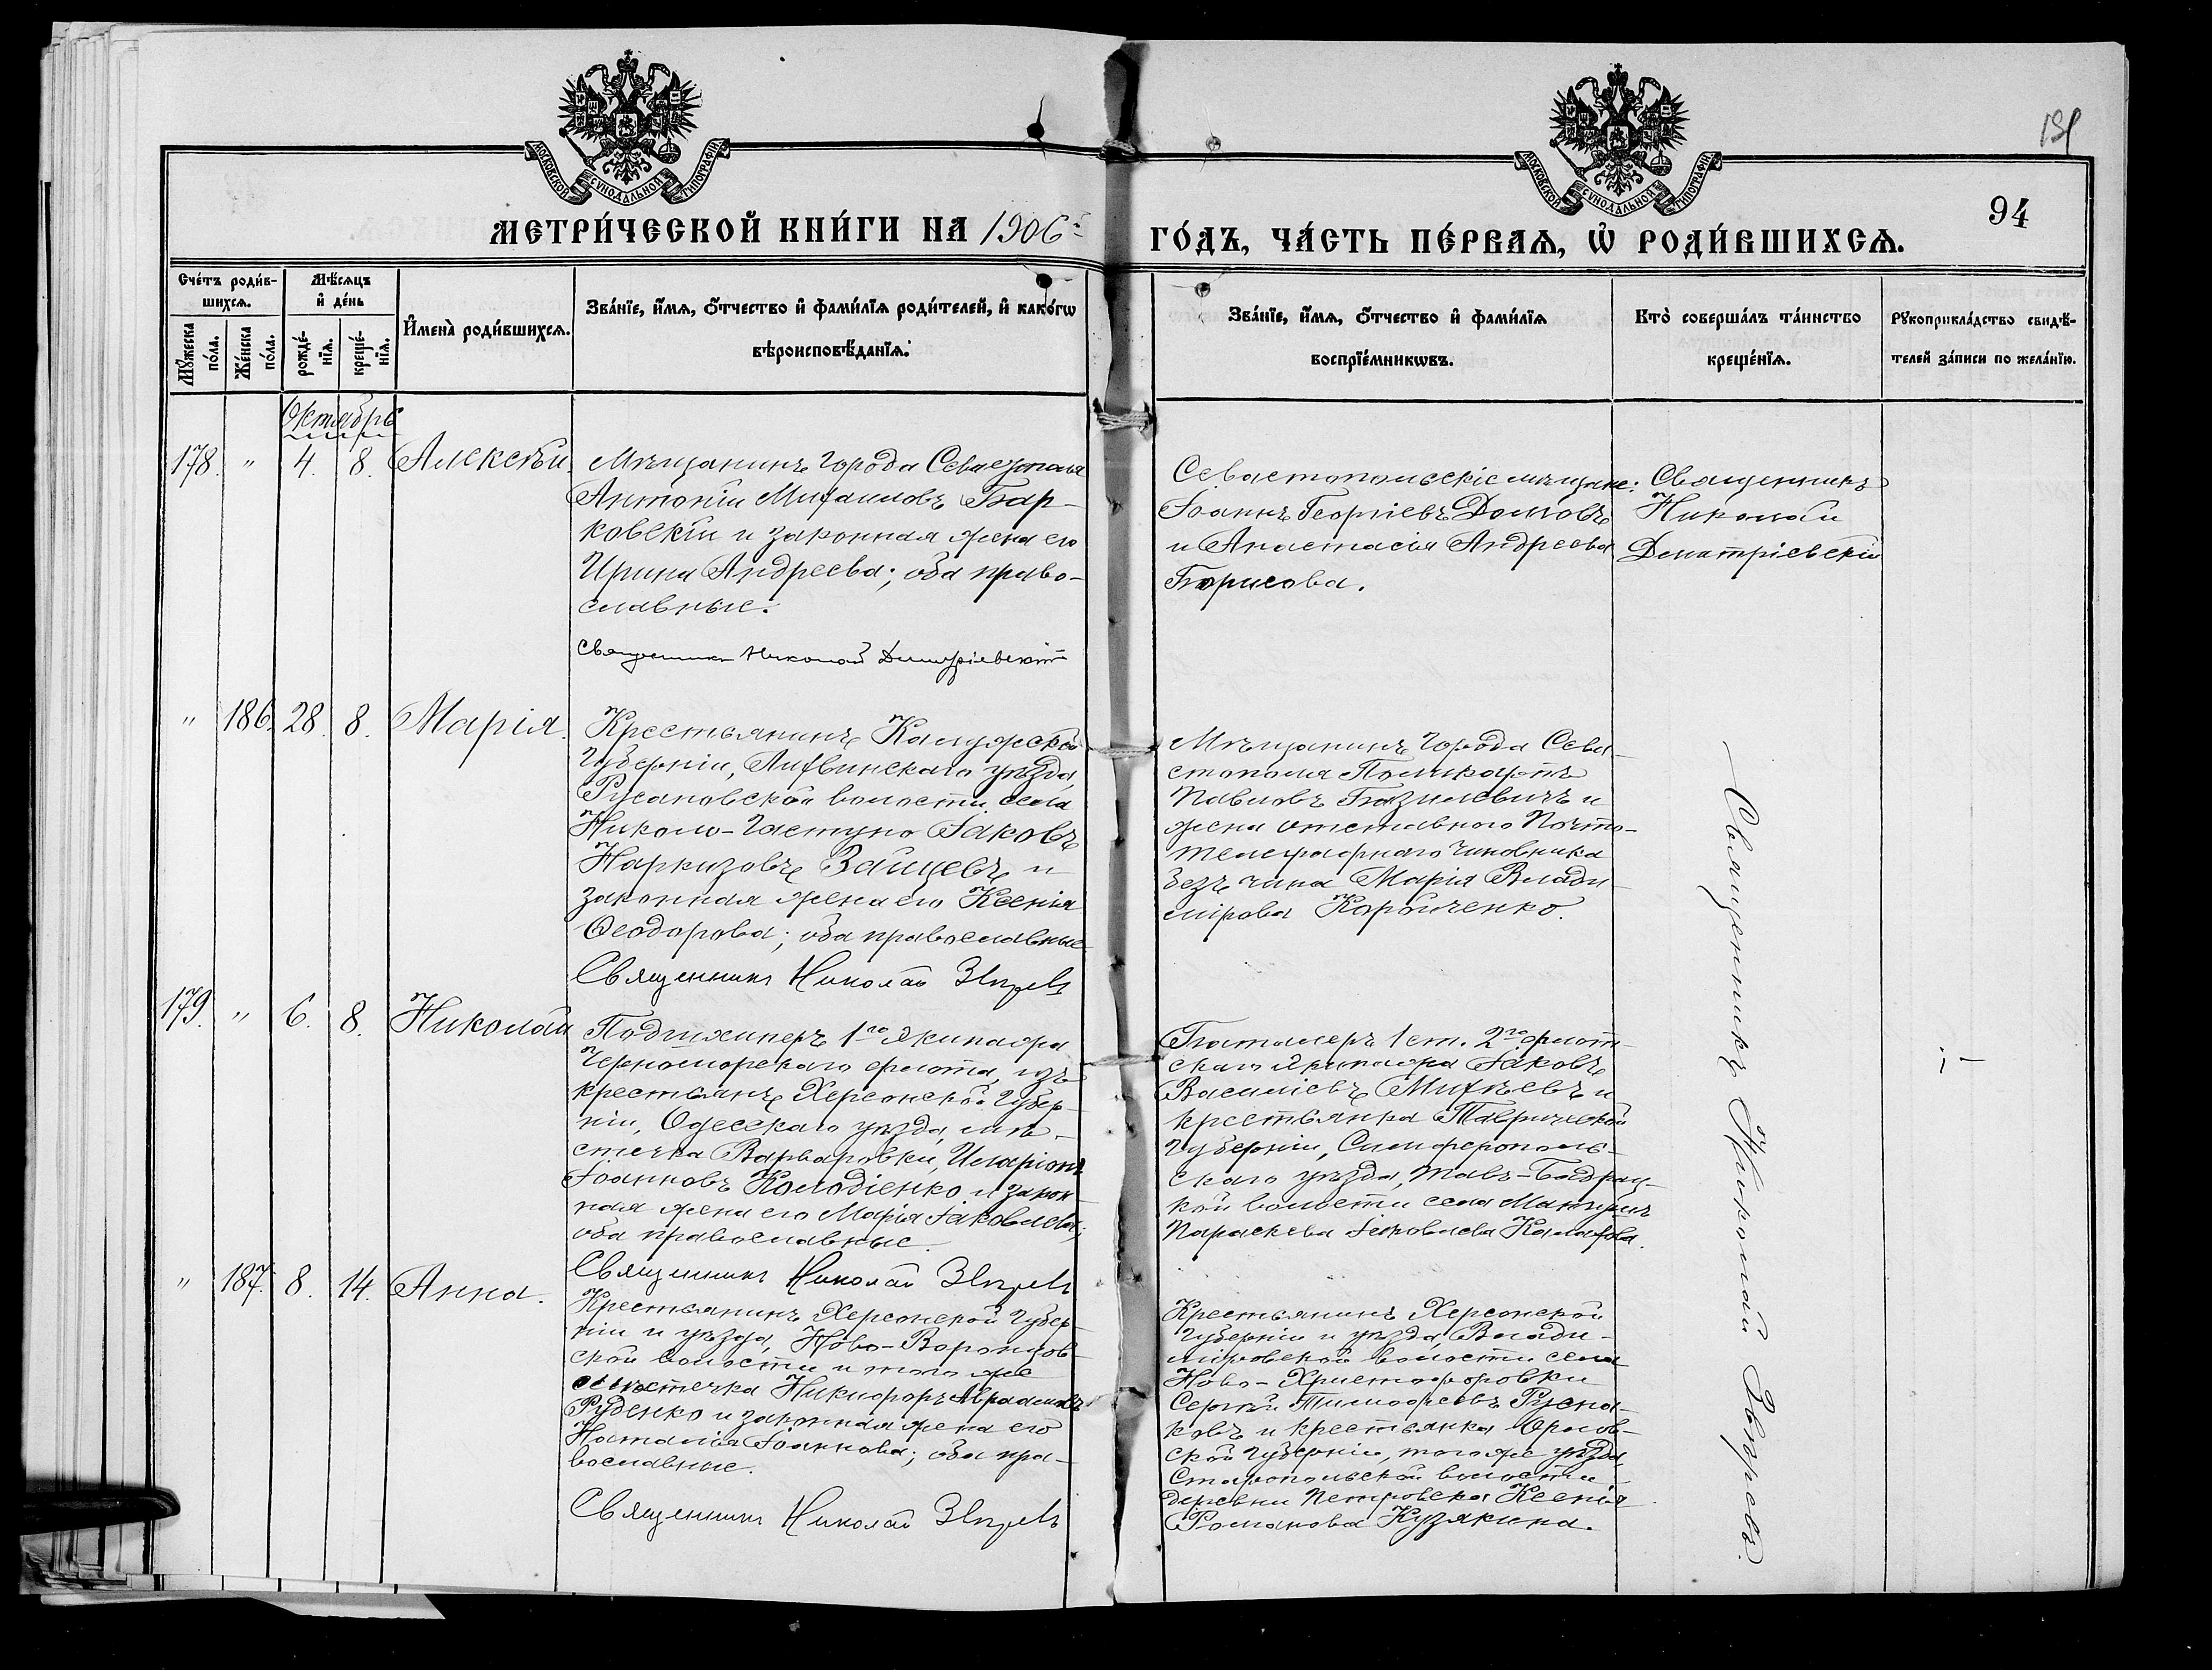 МОСКОВСКОЙ СѴНОДАЛЬНОЙ ТИПОГРАФІИ
МОСКОВСКОЙ СѴНОДАЛЬНОЙ ТИПОГРАФІИ
94
МЕТРИ́ЧЕСКОЙ КНИ́ГИ НА 1906й
ГО́ДЪ, ЧА́СТЬ ПЕ́РВАѦ, Ѡ҆ РОДИ́ВШИХСѦ.
Сче́тъ роди́в-
шихсѧ.
Мꙋ́жеска по́ла.
Же́нска по́ла.
Мѣ́сѧцъ
и҆ де́нь
рожде́-
нїѧ.
креще́-
нїѧ.
И҆мена̀ роди́вшихсѧ.
Зва́нїе, и҆́мѧ, ѻ҆́тчество и҆ фами́лїѧ роди́телей, и҆ како́гѡ
вѣроисповѣ́данїѧ.
Зва́нїе, и҆́мѧ, ѻ҆́тчество и҆ фами́лїѧ
воспрїе́мникѡвъ.
Кто̀ соверша́лъ та́инство
креще́нїѧ.
Рꙋкоприкла́дство свидѣ́-
телей за́писи по жела́нїю.
Октябрь
178. " 4. 8. Алексѣй.
Мѣщанинъ города Севастополя
Антоній Михаиловъ Бар-
ковскій и законная жена его
Ирина Андреева; оба право-
славные.
Священникъ Николай Димитріевскій
Севастопольскіе мѣщане:
Іоаннъ Георгіевъ Домовъ
и Анастасія Андреева
Борисова.
Священникъ
Николай
Димитріевскій
" 186. 28. 8. Марія.
Крестьянинъ Калужской
Губерніи, Лихвинскаго уѣзда,
Русановской волости, села
Николо-Гастуно Іаковъ
Наркизовъ Зайцевъ и
законная жена его Ксенія
Ѳеодорова; оба православные
Священникъ Николай Звѣревъ
Мѣщанинъ города Сева-
стополя Поликарпъ
Павловъ Базилевичъ и
жена отставного Почто-
телеграфнаго чиновника
безъ чина Марія Влади-
мірова Коробченко.
179. " 6. 8. Николай
Подшкиперъ 1го экипажа
Черноморскаго флота, изъ
крестьянъ Херсонской Губер-
ніи, Одесскаго уѣзда, мѣ-
стечка Варваровки, Иларіонъ
Іоанновъ Колодіенко и закон
ная жена его Марія Іаковлева;
оба православные.
Священникъ Николай Звѣревъ
Баталеръ 1 ст. 2го флот-
скаго экипажа Іаковъ
Василіевъ Михѣевъ и
крестьянка Таврической
Губерніи, Симферополь-
скаго уѣзда, Тавъ-Бадрац-
кой волости села Мангушъ
Параскева Іаковлева Калафова.
" 187. 8. 14. Анна.
Крестьянинъ Херсонской Губер-
ніи и уѣзда, Ново-Воронцов-
ской волости и того же
мѣстечка Никифоръ Авраамовъ
Руденко и законная жена его
Наталія Іоаннова; оба пра-
вославные.
Священникъ Николай Звѣревъ
Крестьянинъ Херсонской
Губерніи и уѣзда, Влади-
міровской волости села
Ново-Христофоровки
Сергѣй Тимофеевъ Русна-
ковъ и крестьянка Орлов-
ской Губерніи, того же уѣзда,
Старопольской волости
деревни Петровска Ксенія
Романова Кузякина.
Священникъ Николай Звѣревъ.